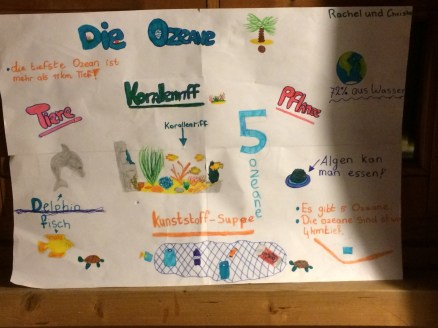 Rachel und
Die Ozeane
• die tiefste Ozean ist
mehr als 11km Tief!
Tiere
Korallenriff
Pflanze
72% aus Wasser
Korallenriff
5
Ozeane
Algen kan
man essen!
Delphin
fisch
Kunststoff-Suppe
• Es gibt 5 Ozeane
• Die ozeane sind
4km tief.